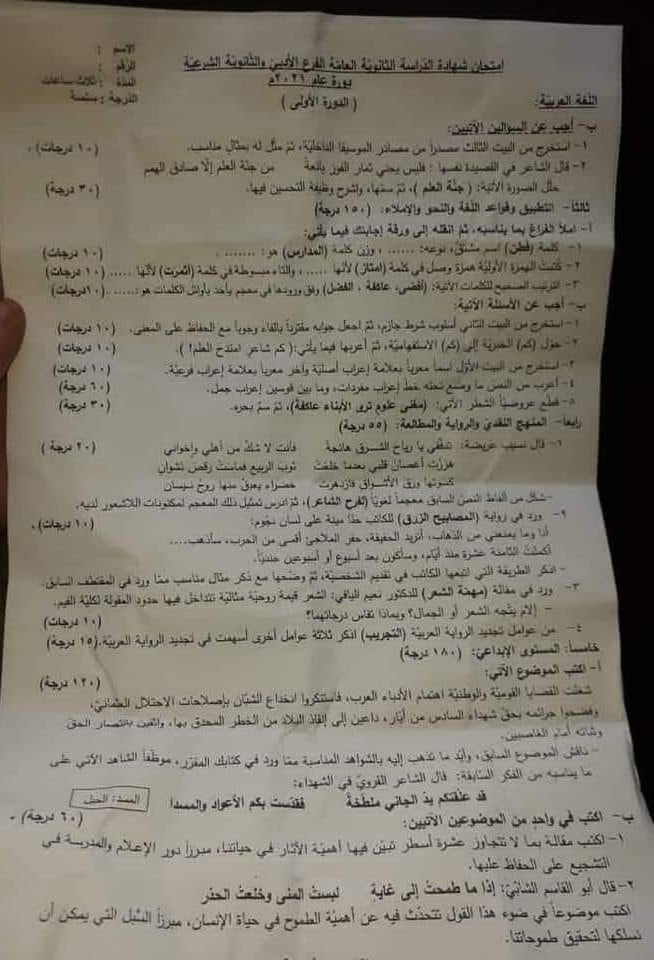 امتحان شهادة الدراسة الثانوية العامة الفرع الأدبي والثانوية الشرعية
دورة عام ٢٠٢١م
(الدورة الأولى)
الاسم :
الرقم :
المدة : ثلاث ساعات
الدرجة : ستمئة
اللغة العربية:
ب- أجب عن السؤالين الآتيين:
١- استخرج من البيت الثالث مصدراً من مصادر الموسيقا الداخلية، ثم مثل له بمثال مناسب. (١٠ درجات)
٢- قال الشاعر في القصيدة نفسها: فليس يجني ثمار الفوز يانعة من جنة العلم إلا صادق الهمم
حلل الصورة الآتية: (جنة العلم)، ثم سمها، واشرح وظيفة التحسين فيها. (٣٠ درجة)
ثالثاً- التطبيق وقواعد اللغة والنحو والإملاء: (١٥٠ درجة)
أ- املأ الفراغ بما يناسبه، ثم انقله إلى ورقة إجابتك فيما يأتي:
١- كلمة (فطن) اسم مشتق، نوعه: ......، وزن كلمة (المدارس) هو: ....... (١٠ درجات)
٢- كتبت الهمزة الأولية همزة وصل في كلمة (امتاز) لأنها .....، والتاء مبسوطة في كلمة (أثمرت) لأنها ..... (١٠ درجات)
٣- الترتيب الصحيح للكلمات الآتية: (أفضى، عاكفة، الفضل) وفق ورودها في معجم يأخذ بأوائل الكلمات هو: ...... (١٠ درجات)
ب- أجب عن الأسئلة الآتية:
١- استخرج من البيت الثاني أسلوب شرط جازم، ثم اجعل جوابه مقترناً بالفاء وجوباً مع الحفاظ على المعنى. (١٠ درجات)
٢- حول (كم) الخبرية إلى (كم) الاستفهامية، ثم أعربها فيما يأتي: (كم شاعر امتدح العلم!). (١٠ درجات)
٣- استخرج من البيت الأول اسماً معرباً بعلامة إعراب أصلية وآخر معرباً بعلامة إعراب فرعية. (١٠ درجات)
٤- أعرب من النص ما وضع تحته خط إعراب مفردات، وما بين قوسين إعراب جمل. (٦٠ درجة)
٥- قطع عروضياً الشطر الآتي: (مغنى علوم ترى الأبناء عاكفة)، ثم سم بحره. (٣٠ درجة)
رابعاً- المنهج النقدي والرواية والمطالعة: (٥٥ درجة)
١- قال نسيب عريضة: تدفقي يا رياح الشرق هائجة فأنت لا شك من أهلي وإخواني (٢٠ درجة)
هززت أغصان قلبي بعدما خلعت ثوب الربيع فماست رقص نشوان
كسوتها ورق الأشواق فازدهرت خضراء يعبق منها روح نيسان
-شكل من ألفاظ النص السابق معجماً لغوياً (لفرح الشاعر)، ثم ادرس تمثيل ذلك المعجم لمكنونات اللاشعور لديه.
٢- ورد في رواية (المصابيح الزرق) للكاتب حنا مينة على لسان نجوم: (١٠ درجات)
أنا وما يمنعني من الذهاب، أتريد الحقيقة، حفر الملاجئ أقسى من الحرب، سأذهب....
أكملت الثامنة عشرة منذ أيام، وسأكون بعد أسبوع أو أسبوعين جندياً.
- اذكر الطريقة التي اتبعها الكاتب في تقديم الشخصية، ثم وضحها مع ذكر مثال مناسب مما ورد في المقتطف السابق.
٣- ورد في مقالة (مهمة الشعر) للدكتور نعيم اليافي: الشعر قيمة روحية مثالية تتداخل فيها حدود المقولة لكلية القيم.
- إلام يتجه الشعر أو الجمال؟ وبماذا تقاس درجاتهما؟ (١٠ درجات)
٤- من عوامل تجديد الرواية العربية (التجريب) اذكر ثلاثة عوامل أخرى أسهمت في تجديد الرواية العربية. (١٥ درجة)
خامساً: المستوى الإبداعي: (١٨٠ درجة)
أ- اكتب الموضوع الآتي: (١٢٠ درجة)
شغلت القضايا القومية والوطنية اهتمام الأدباء العرب، فاستنكروا انخداع الشبان بإصلاحات الاحتلال العثماني،
وفضحوا جرائمه بحق شهداء السادس من أيار، داعين إلى إنقاذ البلاد من الخطر المحدق بها، واثقين بانتصار الحق
وثباته أمام الغاصبين.
- ناقش الموضوع السابق، وأيد ما تذهب إليه بالشواهد المناسبة مما ورد في كتابك المقرر، موظفاً الشاهد الآتي على
ما يناسبه من الفكر السابقة: قال الشاعر القروي في الشهداء:
قد علقتكم يد الجاني ملطخة فقدست بكم الأعواد والمسدا
المسد: الحبل
ب- اكتب في واحد من الموضوعين الآتيين: (٦٠ درجة)
١- اكتب مقالة بما لا تتجاوز عشرة أسطر تبين فيها أهمية الآثار في حياتنا، مبرزاً دور الإعلام والمدرسة في
التشجيع على الحفاظ عليها.
٢- قال أبو القاسم الشابي: إذا ما طمحت إلى غاية لبست المنى وخلعت الحذر
اكتب موضوعاً في ضوء هذا القول تتحدث فيه عن أهمية الطموح في حياة الإنسان، مبرزاً السبل التي يمكن أن
نسلكها لتحقيق طموحاتنا.